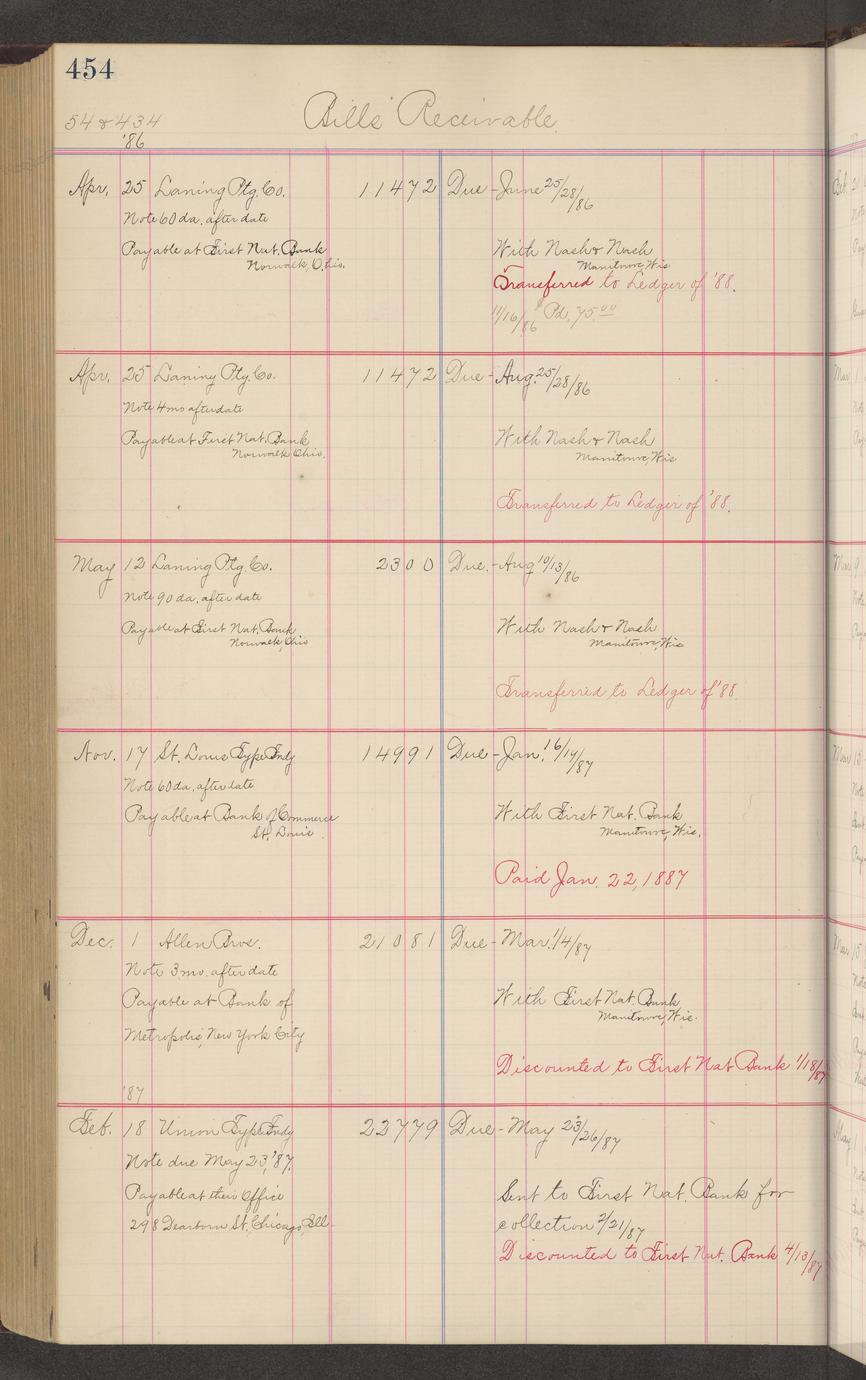 454
54 & 434
Bills Receivable.
'86
Apr. 25 Laning Ptg. Co. 11472 Due - June 25/28/86
Note 60 da. after date
Payable at First Nat. Bank With Nash & Nash
Norwalk, Ohio. Manitowoc, Wis
Transferred to Ledger of '88.
11/16/86 Pd. 75.00
Apr. 25 Laning Ptg. Co. 11472 Due - Aug. 25/28/86
Note 4 mo after date
Payable at First Nat. Bank With Nash & Nash
Norwalk Ohio. Manitowoc, Wis
Transferred to Ledger of '88.
May 12 Laning Ptg. Co. 2300 Due. - Aug 10/13/86
Note 90 da. after date
Payable at First Nat. Bank With Nash & Nash
Norwalk, Ohio Manitowoc, Wis
Transferred to Ledger of '88
Nov. 17 St. Louis Type Fndy 14991 Due - Jan. 16/19/87
Note 60 da. after date
Payable at Bank of Commerce With First Nat. Bank
St. Louis. Manitowoc, Wis.
Paid Jan. 22, 1887
Dec. 1 Allen Bros. 21081 Due - Mar. 1/4/87
Note 3 mo. after date
Payable at Bank of With First Nat. Bank
Manitowoc, Wis.
Metropolis, New York City
Discounted to First Nat Bank 1/18/87
'87
Feb. 18 Union Type Fndy 22779 Due - May 23/26/87
Note due May 23, '87.
Payable at their office Sent to First Nat. Bank for
298 Dearborn St., Chicago, Ill collection 2/21/87
Discounted to First Nat. Bank 4/13/87